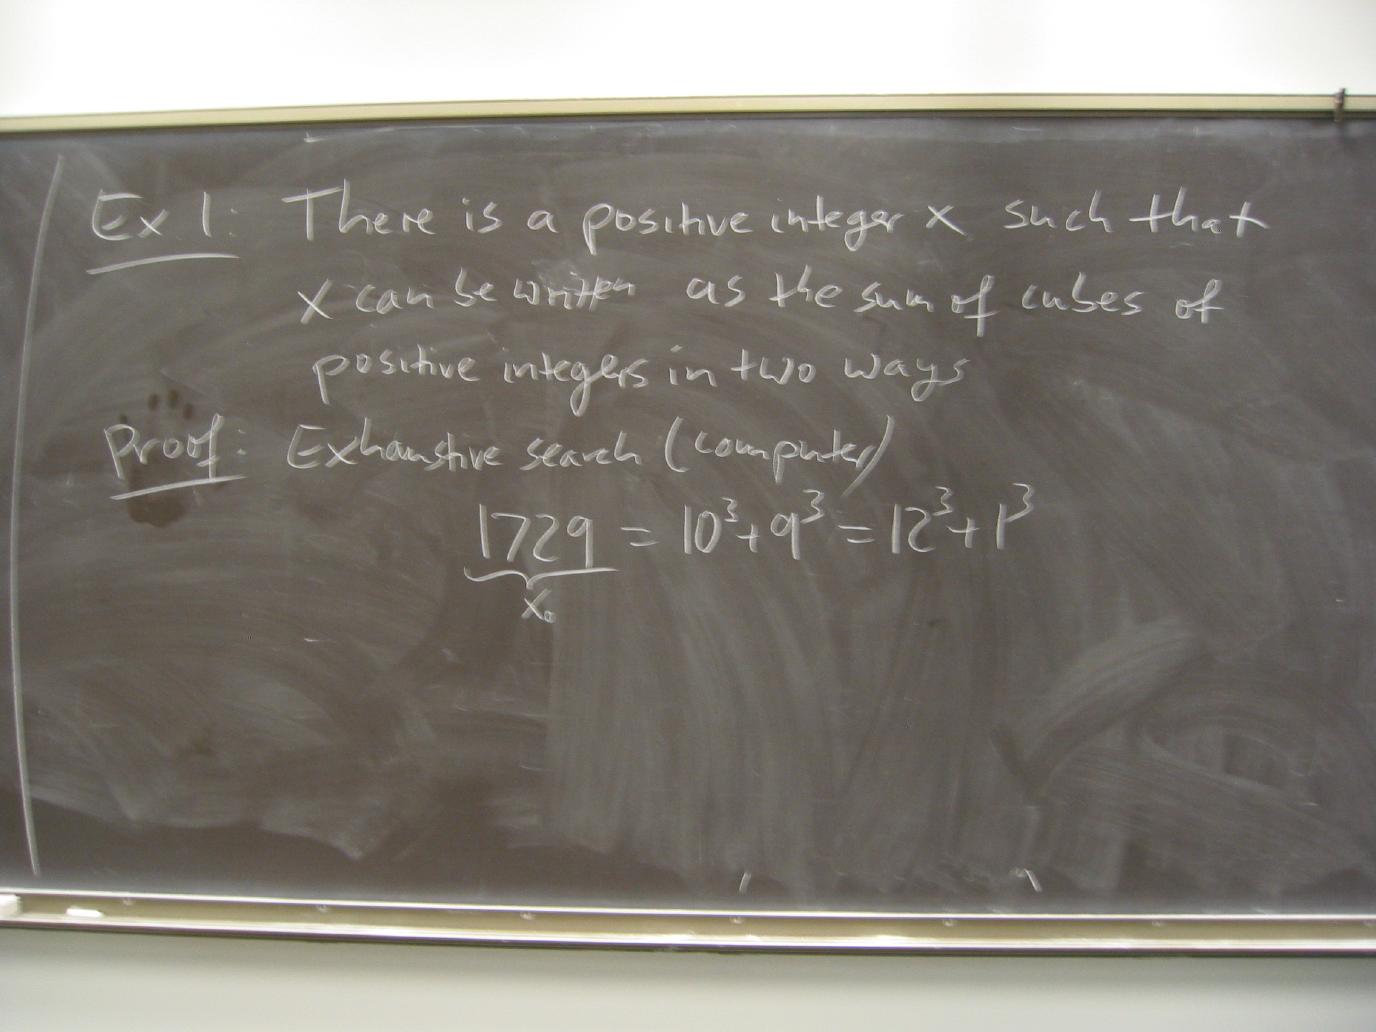 Ex 1: There is a positive integer x such that
x can be written as the sum of cubes of
positive integers in two ways
Proof: Exhaustive search (computer)
1729 = 10³+9³ = 12³+1³
x₀